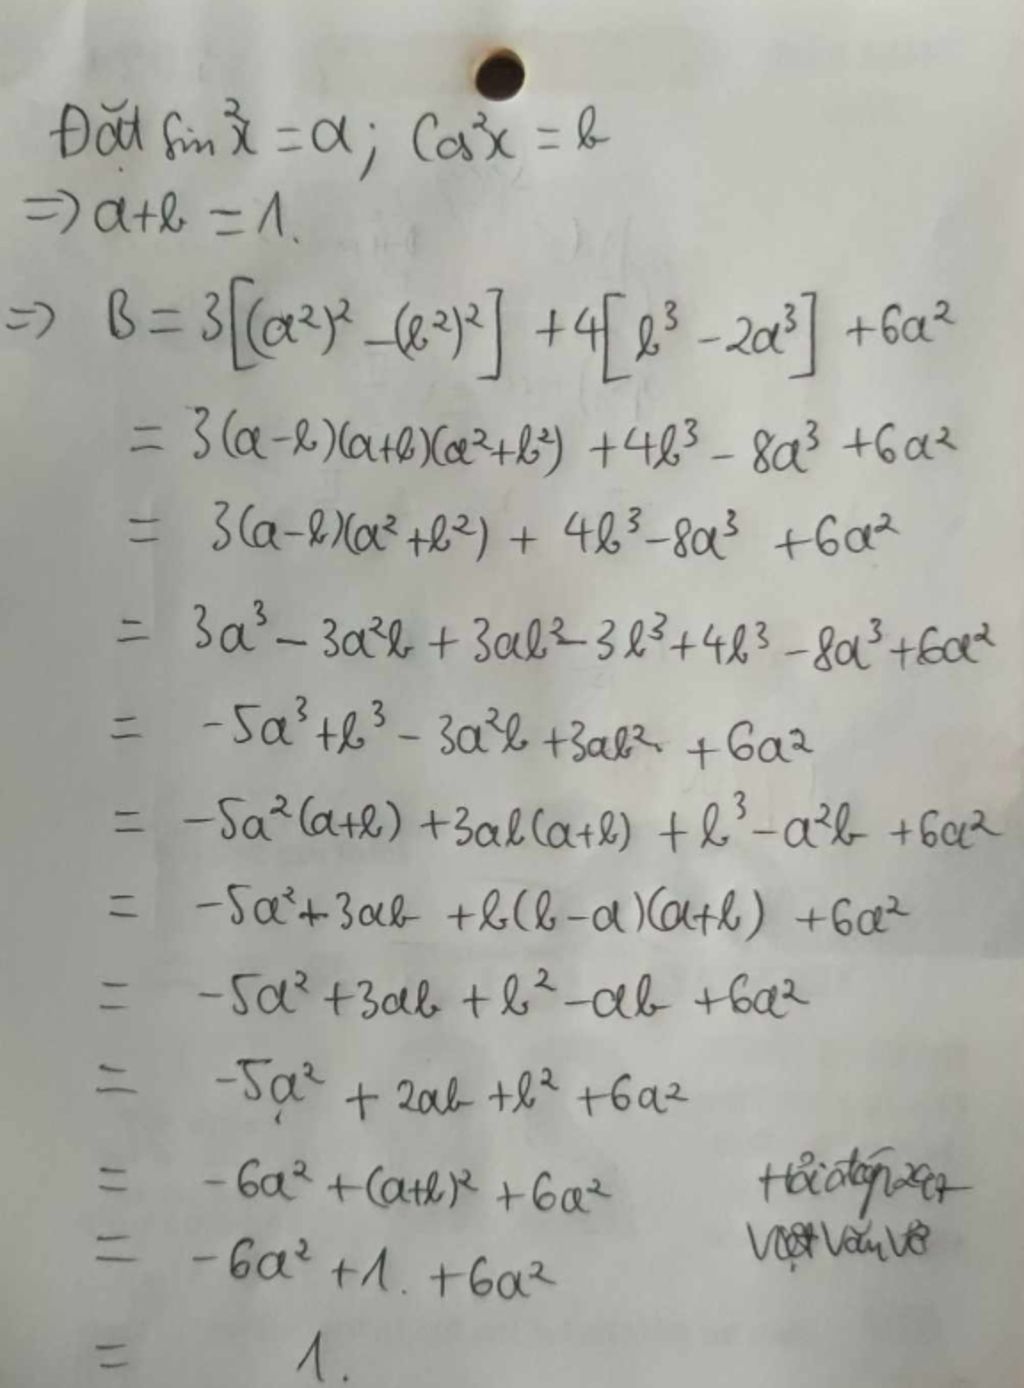 Đặt sin²x = a; Cos²x = b
=> a+b = 1.
=> B = 3[(a²)² - (b²)²] + 4[b³ - 2a³] + 6a²
= 3(a-b)(a+b)(a²+b²) + 4b³ - 8a³ + 6a²
= 3(a-b)(a²+b²) + 4b³ - 8a³ + 6a²
= 3a³ - 3a²b + 3ab² - 3b³ + 4b³ - 8a³ + 6a²
= -5a³ + b³ - 3a²b + 3ab² + 6a²
= -5a²(a+b) + 3ab(a+b) + b³ - a²b + 6a²
= -5a² + 3ab + b(b-a)(a+b) + 6a²
= -5a² + 3ab + b² - ab + 6a²
= -5a² + 2ab + b² + 6a²
= -6a² + (a+b)² + 6a²
= -6a² + 1. + 6a²
= 1.
Hỏi đáp 247
Việt Văn Võ